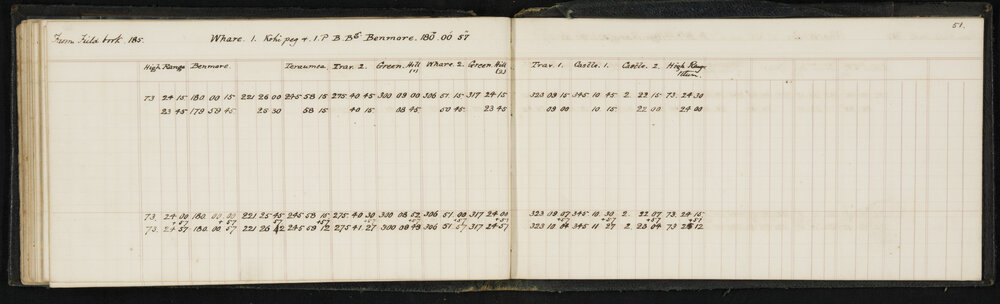 51.
From Field book. 185. Whare. 1. Kohi peg 4. 1. P. B. Bs Benmore. 180° 00' 57"
High Range Benmore. Teraumea. Trav. 2. Green. Hill (1) Whare. 2 Green Hill (2) Trav. 1. Castle. 1. Castle. 2. High Range
73. 24 15 180 00 15 221 26 00 245 58 15 275 40 45 300 09 00 306 51 15 317 24 15 323 09 15 345 10 45 2. 22 15 73. 24 30
23 45 179 59 45 25 30 58 15 40 15 08 45 50 45 23 45 09 00 10 15 22 00 24 00
73. 24 00 180. 00 00 221 25 45 245 58 15 275. 40 30 300 08 52 306 51 00 317 24 00 323 09 07 345 10 30 2. 22 07 73. 24 15
+57 +57 57 +57 +57 +57 +57 +57 +57 +57 +57 +57
73. 24 57 180. 00 57 221 26 42 245 59 12 275 41 27 300 09 49 306 51 57 317 24 57 323 10 04 345 11 27 2. 23 04 73 25 12